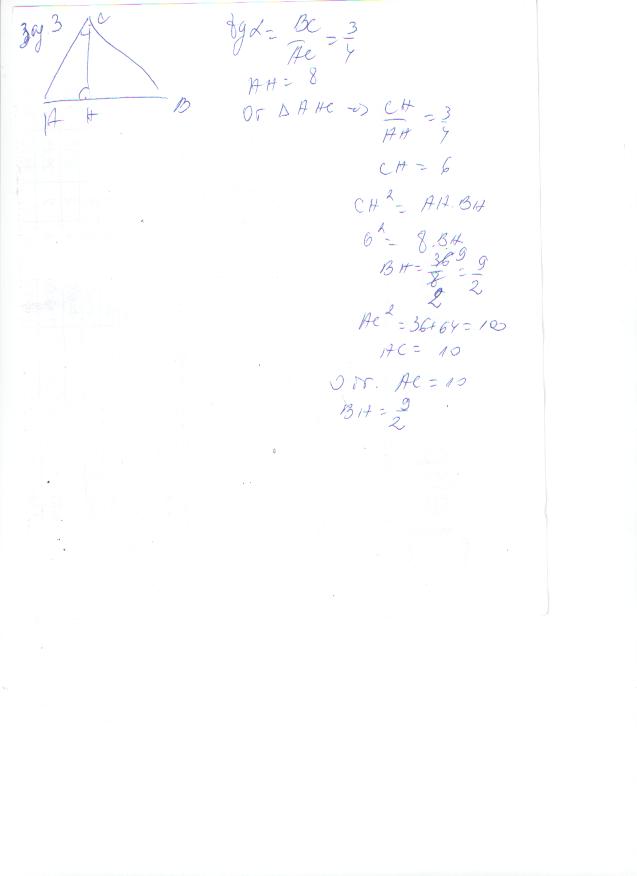 зад 3
C
A H B
tgα = BC/AC = 3/4
AH = 8
От △ AHC => CH/AH = 3/4
CH = 6
CH² = AH.BH
6² = 8.BH
BH = 36/8 = 9/2
9
2
AC² = 36+64 = 100
AC = 10
Отг. AC = 10
BH = 9/2